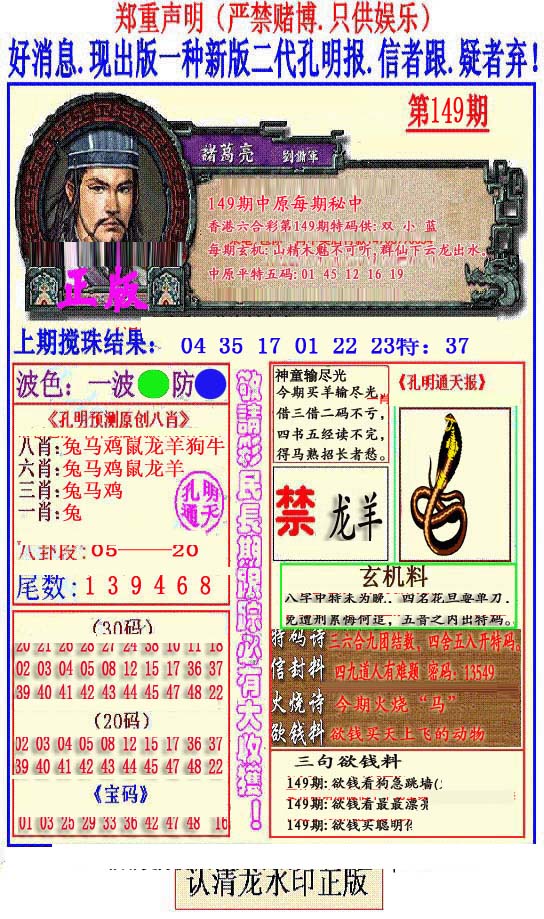 郑重声明（严禁赌博.只供娱乐）
好消息.现出版一种新版二代孔明报.信者跟.疑者弃！
第149期
諸葛亮 劉備軍
149期中原每期秘中
香港六合彩第149期特码供: 双 小 蓝
每期玄机: 山精木魅不可听, 群仙下云龙出水.
中原平特五码: 01 45 12 16 19
正版
上期搅珠结果： 04 35 17 01 22 23特：37
波色：一波 防
《孔明预测原创八肖》
八肖: 兔马鸡鼠龙羊狗牛
六肖: 兔马鸡鼠龙羊
三肖: 兔马鸡
一肖: 兔
孔明
通天
八卦段: 05——20
尾数: 1 3 9 4 6 8
(30码)
20 21 26 28 27 24 38 10 11 18
02 03 04 05 08 12 15 17 36 37
39 40 41 42 43 44 45 47 48 22
(20码)
02 03 04 05 08 12 15 17 36 37
39 40 41 42 43 44 45 47 48 22
《宝码》
01 03 25 29 33 36 42 47 48 16
敬請彩民長期跟踪必有大收獲！
神童输尽光
今期买羊输尽光
一肖
借三借二码不亏,
四书五经读不完,
得马熟招长者愁。
《孔明通天报》
禁 龙羊
玄机料
八字中特未为晚，四名花旦耍单刀.
免遭刑累悔何迟，五音之内出特码。
特码诗 三六合九团结数，四舍五入开特码。
信封料 四九道人有难题 密码：13549
火烧诗 今期火烧“马”
欲钱料 欲钱买天上飞的动物
三句欲钱料
149期: 欲钱看狗急跳墙(
149期: 欲钱看最最漂亮
149期: 欲钱买聪明
认清龙水印正版